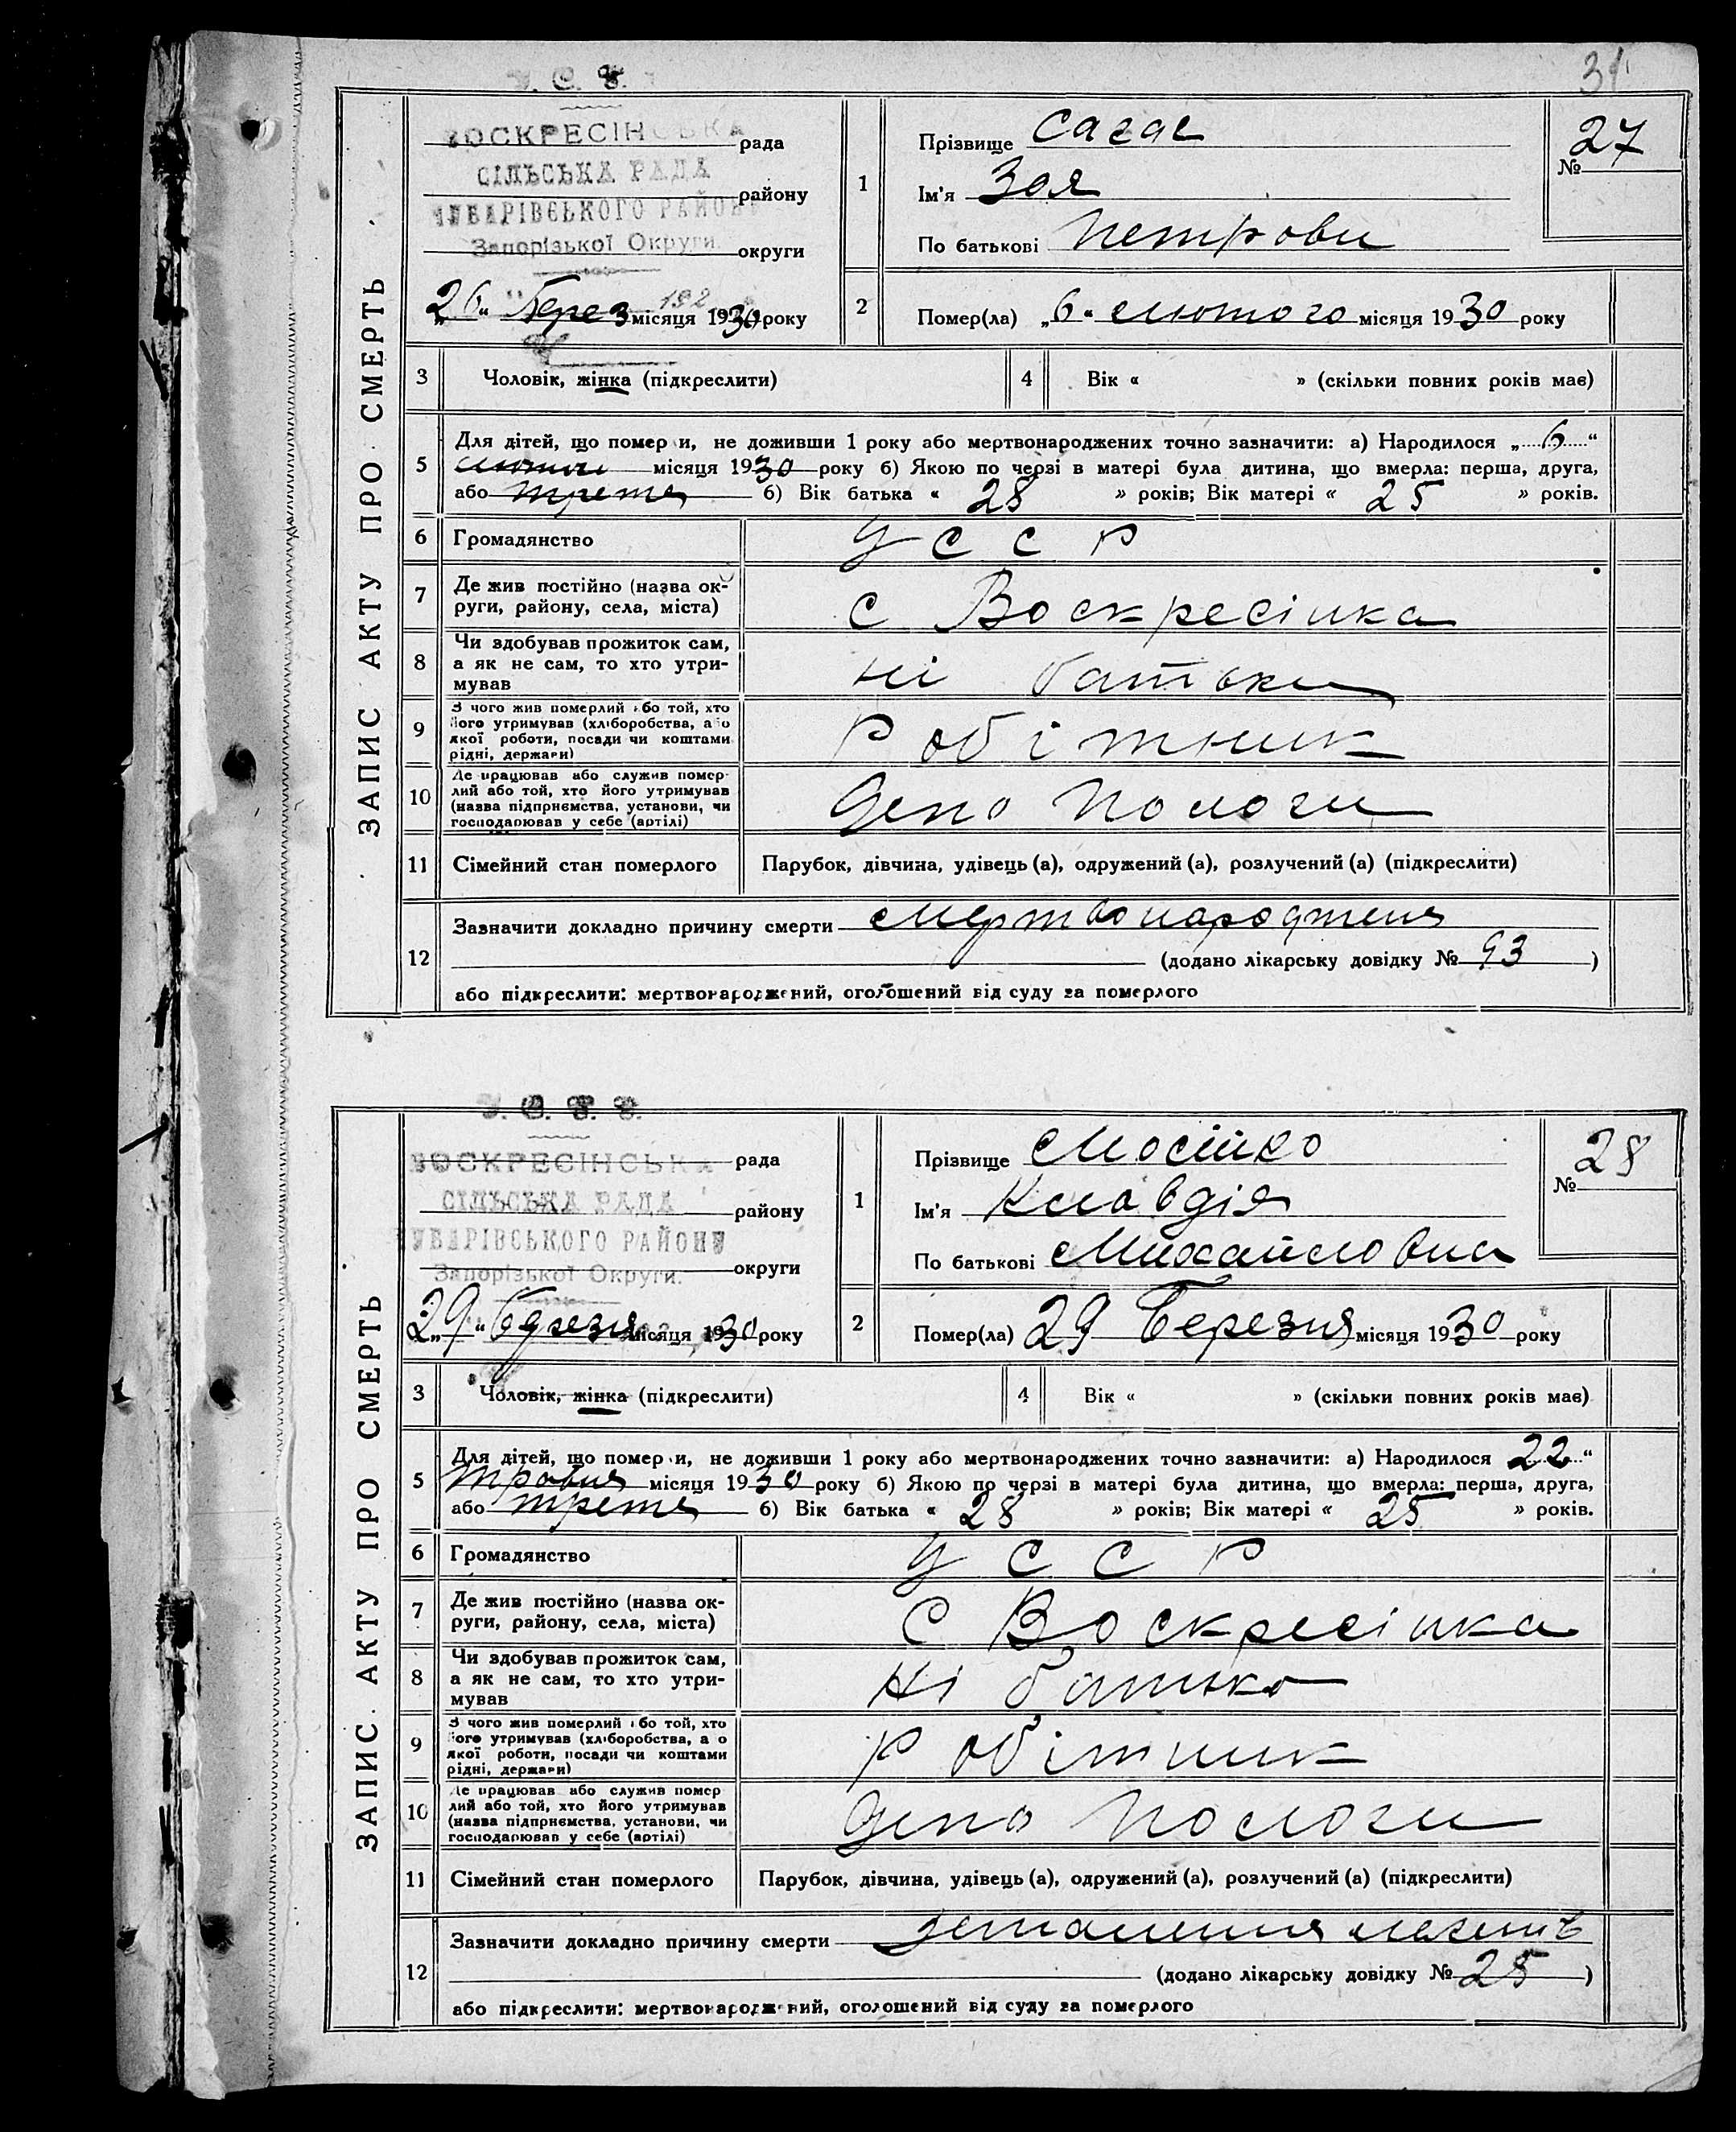 31
У. С. Р.
ВОСКРЕСІНСЬКА рада
СІЛЬСЬКА РАДА
району
ЧУБАРІВСЬКОГО РАЙОНУ
Запорізької Округи.
округи
„26“ Берез місяця 1930 року
ЗАПИС АКТУ ПРО СМЕРТЬ
1 Прізвище Сагас
Ім'я Зоя
По батькові Петрови
№ 27
2 Помер(ла) „6“ лютого місяця 1930 року
3 Чоловік, жінка (підкреслити)
4 Вік « » (скільки повних років має)
5 Для дітей, що померли, не доживши 1 року або мертвонароджених точно зазначити: а) Народилося „6“
лютого місяця 1930 року б) Якою по черзі в матері була дитина, що вмерла: перша, друга,
або третя б) Вік батька « 28 » років; Вік матері « 25 » років.
6 Громадянство УССР
7 Де жив постійно (назва ок-
руги, району, села, міста) с Воскресінка
8 Чи здобував прожиток сам,
а як не сам, то хто утри-
мував ні батьки
9 З чого жив померлий або той, хто
його утримував (хліборобства, або
якої роботи, посади чи коштами
рідні, держави) Робітник
10 Де працював або служив помер-
лий або той, хто його утримував
(назва підприємства, установи, чи
господарював у себе (артілі) Депо Пологи
11 Сімейний стан померлого Парубок, дівчина, удівець (а), одружений (а), розлучений (а) (підкреслити)
12 Зазначити докладно причину смерти мертвонароджения
(додано лікарську довідку № 93 )
або підкреслити: мертвонароджений, оголошений від суду за померлого
У. С. Р. Р.
ВОСКРЕСІНСЬКА рада
СІЛЬСЬКА РАДА
району
ЧУБАРІВСЬКОГО РАЙОНУ
Запорізької Округи.
округи
„29“ Березня місяця 1930 року
ЗАПИС АКТУ ПРО СМЕРТЬ
1 Прізвище Мосійко
Ім'я Клавдія
По батькові Михайловна
№ 28
2 Помер(ла) 29 Березня місяця 1930 року
3 Чоловік, жінка (підкреслити)
4 Вік « » (скільки повних років має)
5 Для дітей, що померли, не доживши 1 року або мертвонароджених точно зазначити: а) Народилося 22“
травня місяця 1930 року б) Якою по черзі в матері була дитина, що вмерла: перша, друга,
або третя б) Вік батька « 28 » років; Вік матері « 25 » років.
6 Громадянство УССР
7 Де жив постійно (назва ок-
руги, району, села, міста) с Воскресінка
8 Чи здобував прожиток сам,
а як не сам, то хто утри-
мував Ні батько
9 З чого жив померлий або той, хто
його утримував (хліборобства, або
якої роботи, посади чи коштами
рідні, держави) Робітник
10 Де працював або служив помер-
лий або той, хто його утримував
(назва підприємства, установи, чи
господарював у себе (артілі) Депо Пологи
11 Сімейний стан померлого Парубок, дівчина, удівець (а), одружений (а), розлучений (а) (підкреслити)
12 Зазначити докладно причину смерти
(додано лікарську довідку № 25 )
або підкреслити: мертвонароджений, оголошений від суду за померлого